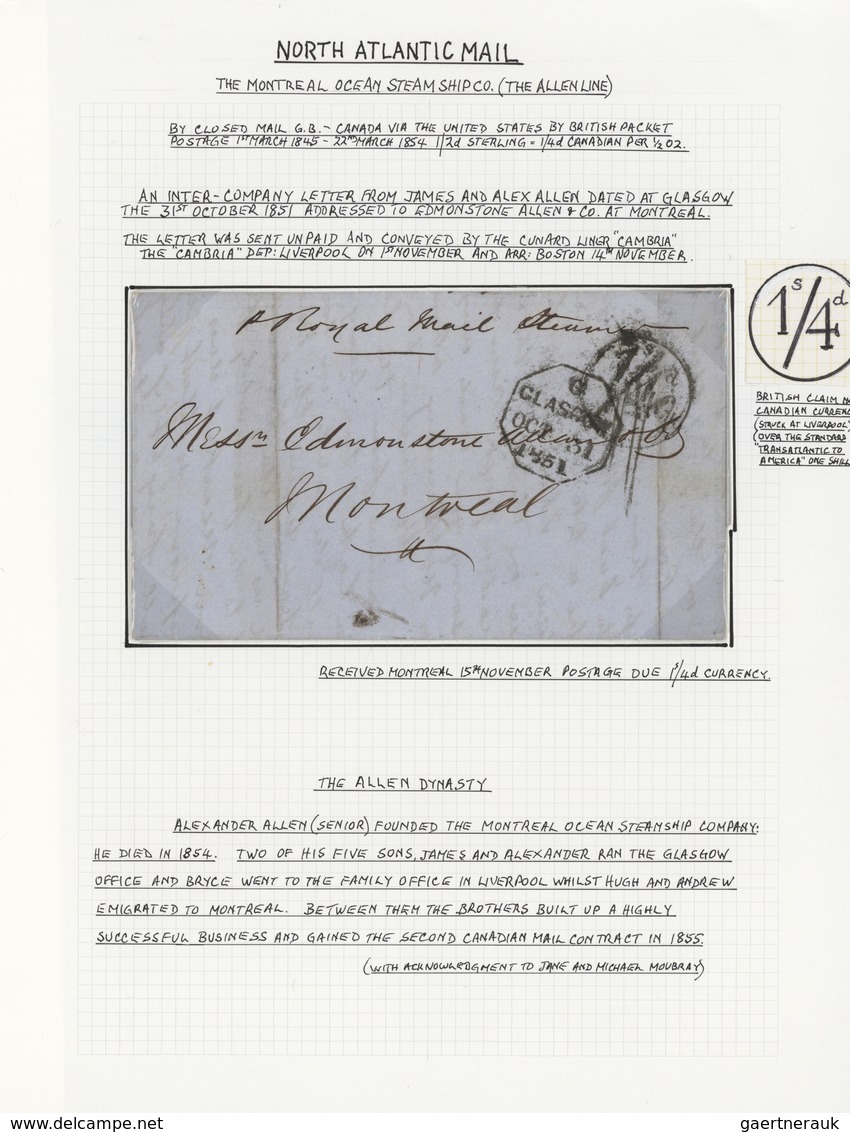 NORTH ATLANTIC MAIL
THE MONTREAL OCEAN STEAM SHIP CO. (THE ALLEN LINE)
BY CLOSED MAIL G.B. - CANADA VIA THE UNITED STATES BY BRITISH PACKET
POSTAGE 1ST MARCH 1845 - 22ND MARCH 1854 1/2d STERLING = 1/4d CANADIAN PER ½ OZ.
AN INTER-COMPANY LETTER FROM JAMES AND ALEX ALLEN DATED AT GLASGOW
THE 31ST OCTOBER 1851 ADDRESSED TO EDMONSTONE ALLEN & CO. AT MONTREAL.
THE LETTER WAS SENT UNPAID AND CONVEYED BY THE CUNARD LINER "CAMBRIA"
THE "CAMBRIA" DEP: LIVERPOOL ON 1ST NOVEMBER AND ARR: BOSTON 14TH NOVEMBER.
1s/4d
BRITISH CLAIM
CANADIAN CURRENC
(STRUCK AT LIVERPOOL)
(OVER THE STANDARD
"TRANSATLANTIC TO
AMERICA" ONE SHILL
p Royal Mail Steamer
G
GLASGOW
OCT 31
1851
Messrs Edmonstone Allan & Co
Montreal
RECEIVED MONTREAL 15TH NOVEMBER POSTAGE DUE 1s/4d CURRENCY.
THE ALLEN DYNASTY
ALEXANDER ALLEN (SENIOR) FOUNDED THE MONTREAL OCEAN STEAMSHIP COMPANY:
HE DIED IN 1854. TWO OF HIS FIVE SONS, JAMES AND ALEXANDER RAN THE GLASGOW
OFFICE AND BRYCE WENT TO THE FAMILY OFFICE IN LIVERPOOL WHILST HUGH AND ANDREW
EMIGRATED TO MONTREAL. BETWEEN THEM THE BROTHERS BUILT UP A HIGHLY
SUCCESSFUL BUSINESS AND GAINED THE SECOND CANADIAN MAIL CONTRACT IN 1855.
(WITH ACKNOWLEDGMENT TO JANE AND MICHAEL MOUBRAY)
www.delcampe.net
gaertnerauk